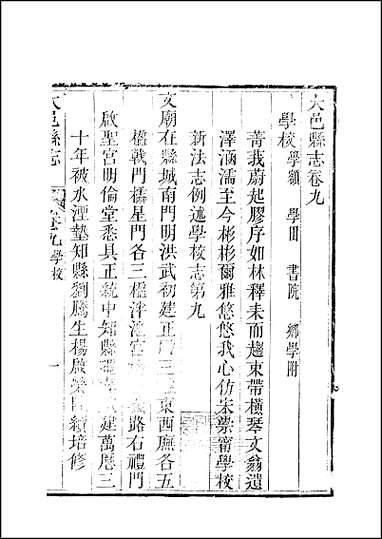 大邑縣志卷九
學校 學額 學田 書院 鄉學附
菁莪蔚起膠序如林釋耒而趨束帶橫琴文翁遺
澤涵濡至今彬彬爾雅悠悠我心仿宋崇甯學校
新法志例述學校志第九
文廟在縣城南門明洪武初建正三東西廡各五
楹戟門櫺星門各三楹泮池宮路右禮門
啟聖宮明倫堂悉具正統中知縣建萬厯三
十年被水湮墊知縣劉騰生楊廣續培修
大邑縣志 卷九 學校 一